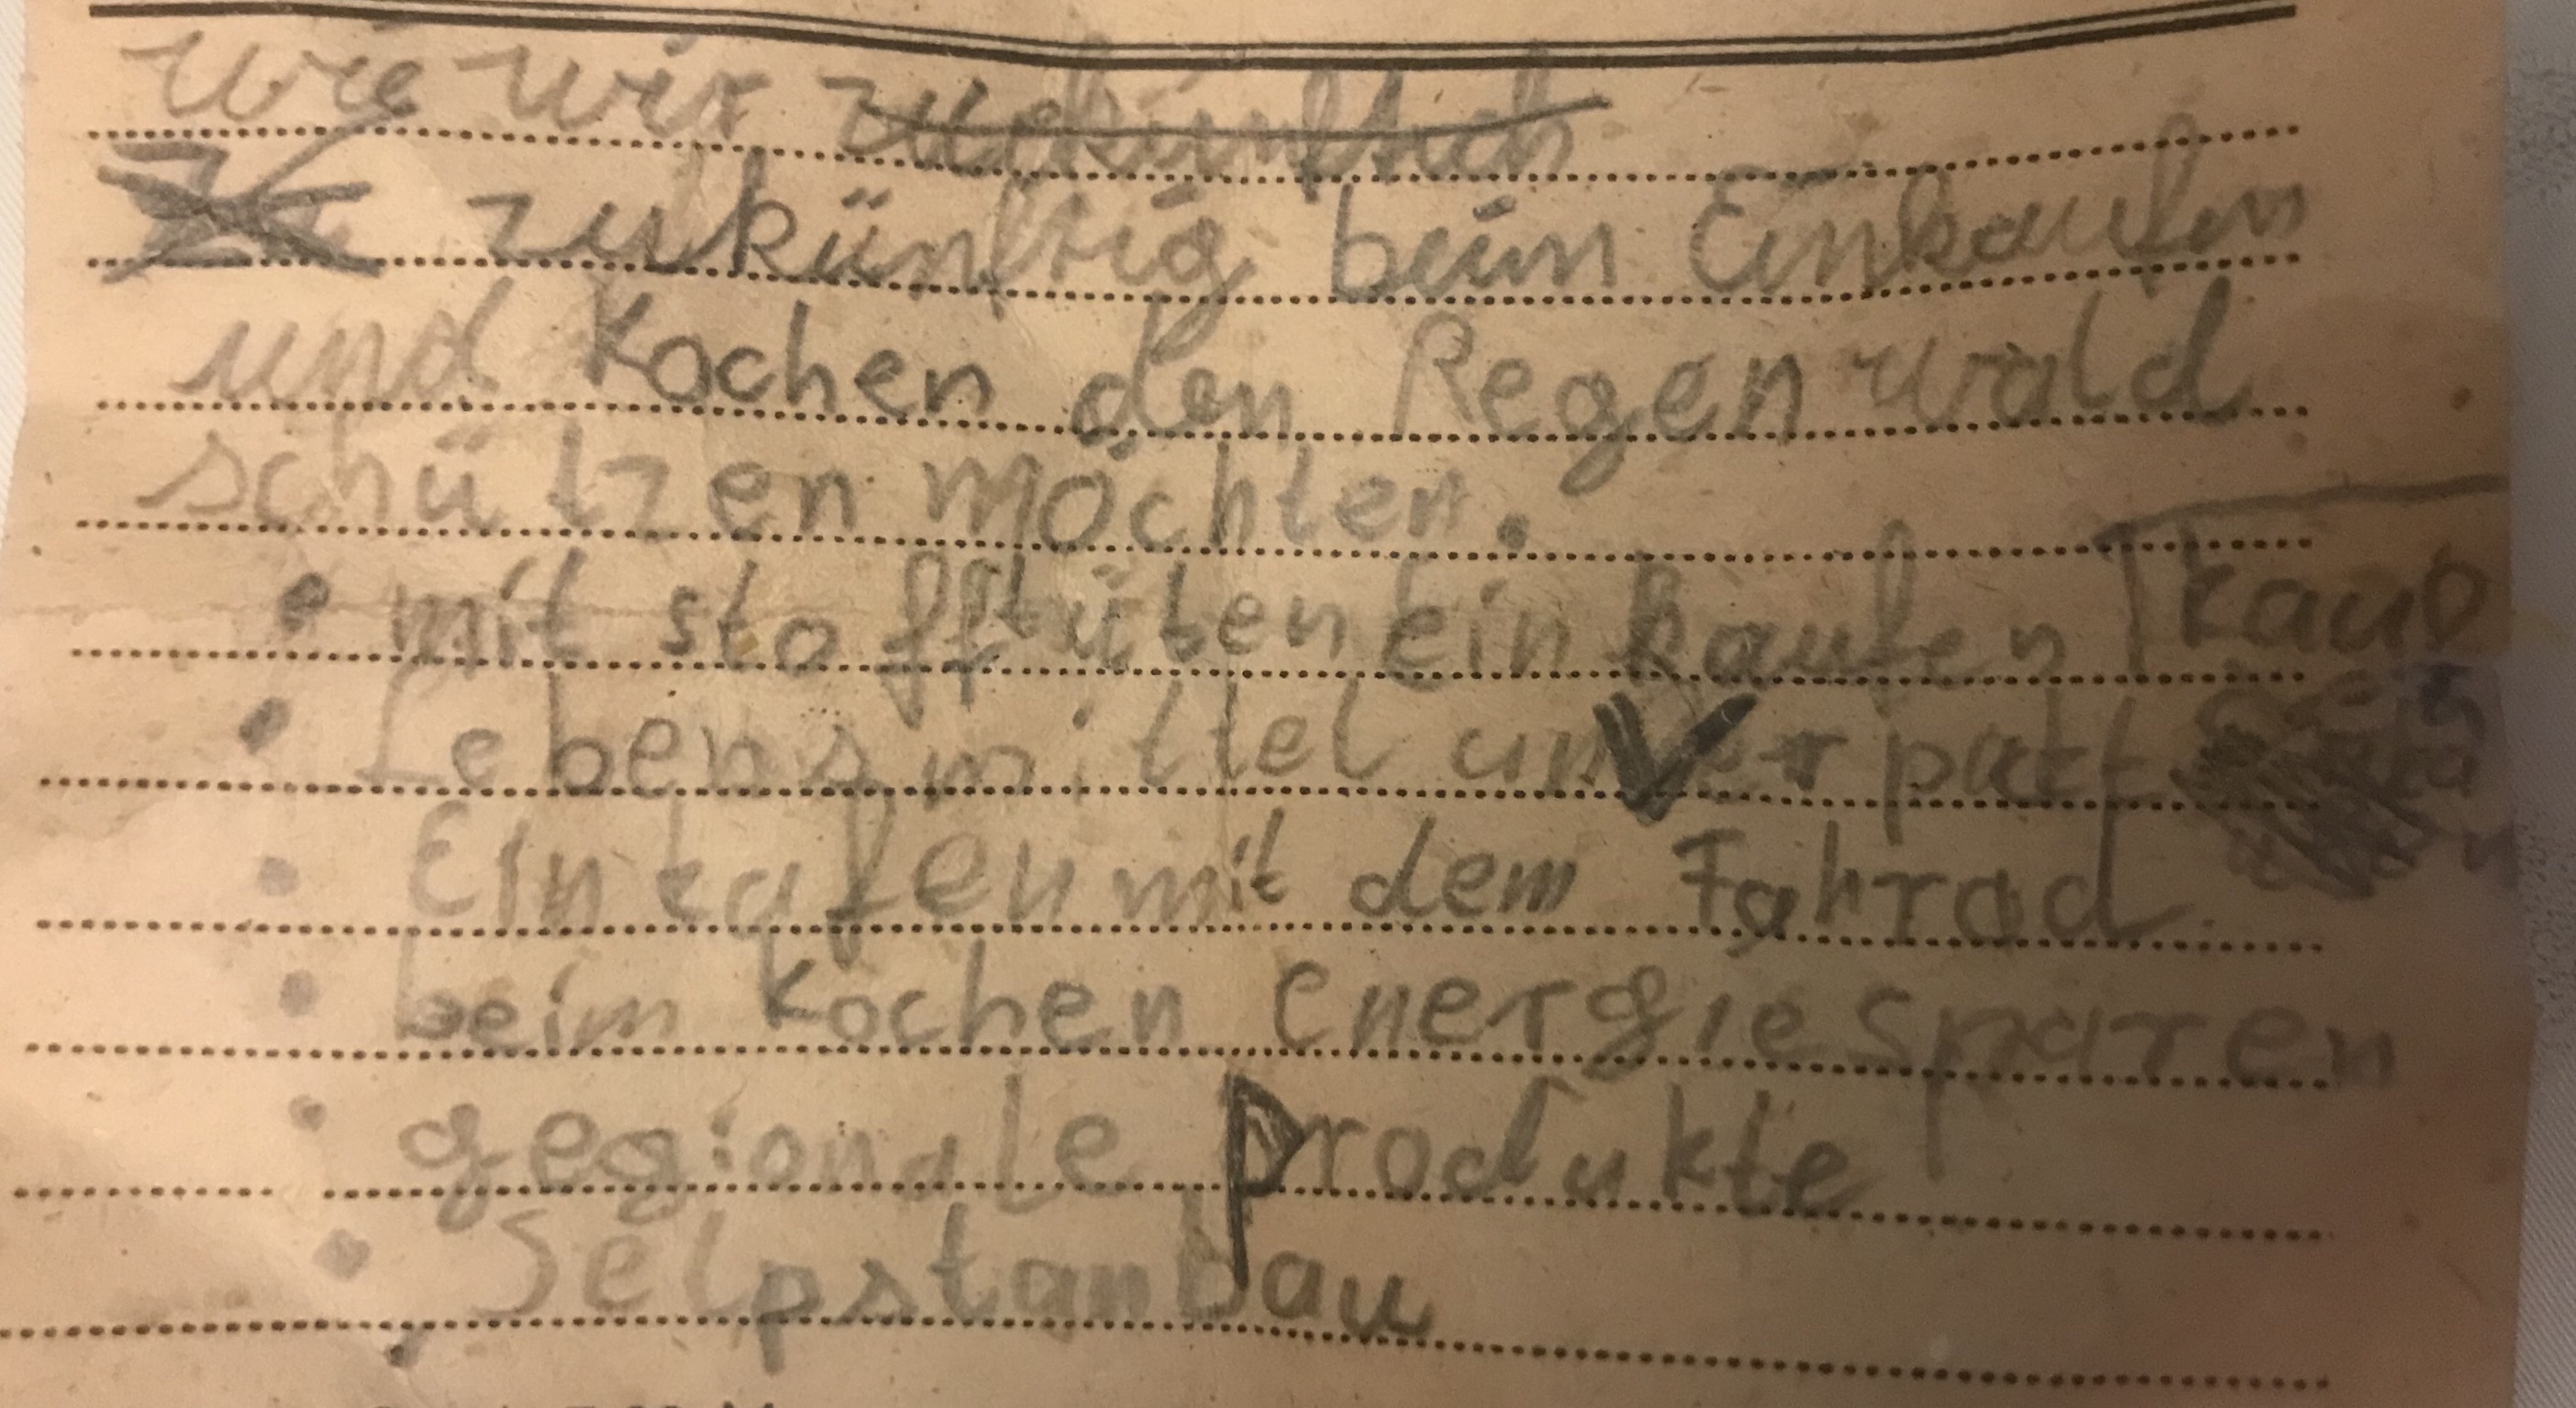 wie wir zukünftich
zukünftig beim Einkaufen
und Kochen den Regenwald
schützen möchten.
• mit stofftüten einkaufen
• Lebensmittel unverpakt
• Einkafen mit dem Fahrad
• beim kochen energie sparen
• gegionale Produkte
• Selpstanbau